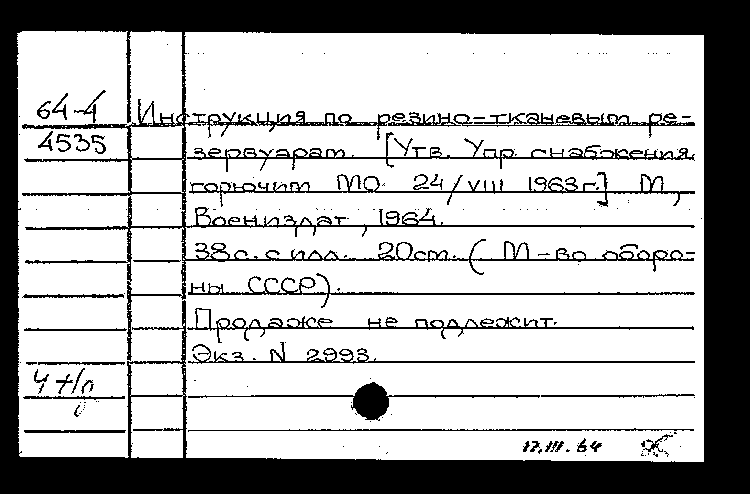 64-4 Инструкция по резино-тканевым ре-
4535 зервуарам. [Утв. Упр. снабжения
горючим МО 24/VIII 1963г.] М,
Воениздат, 1964.
38с. с илл. 20см. ( М-во оборо-
ны СССР).
Продаже не подлежит.
Экз. N 2993.
17.III.64